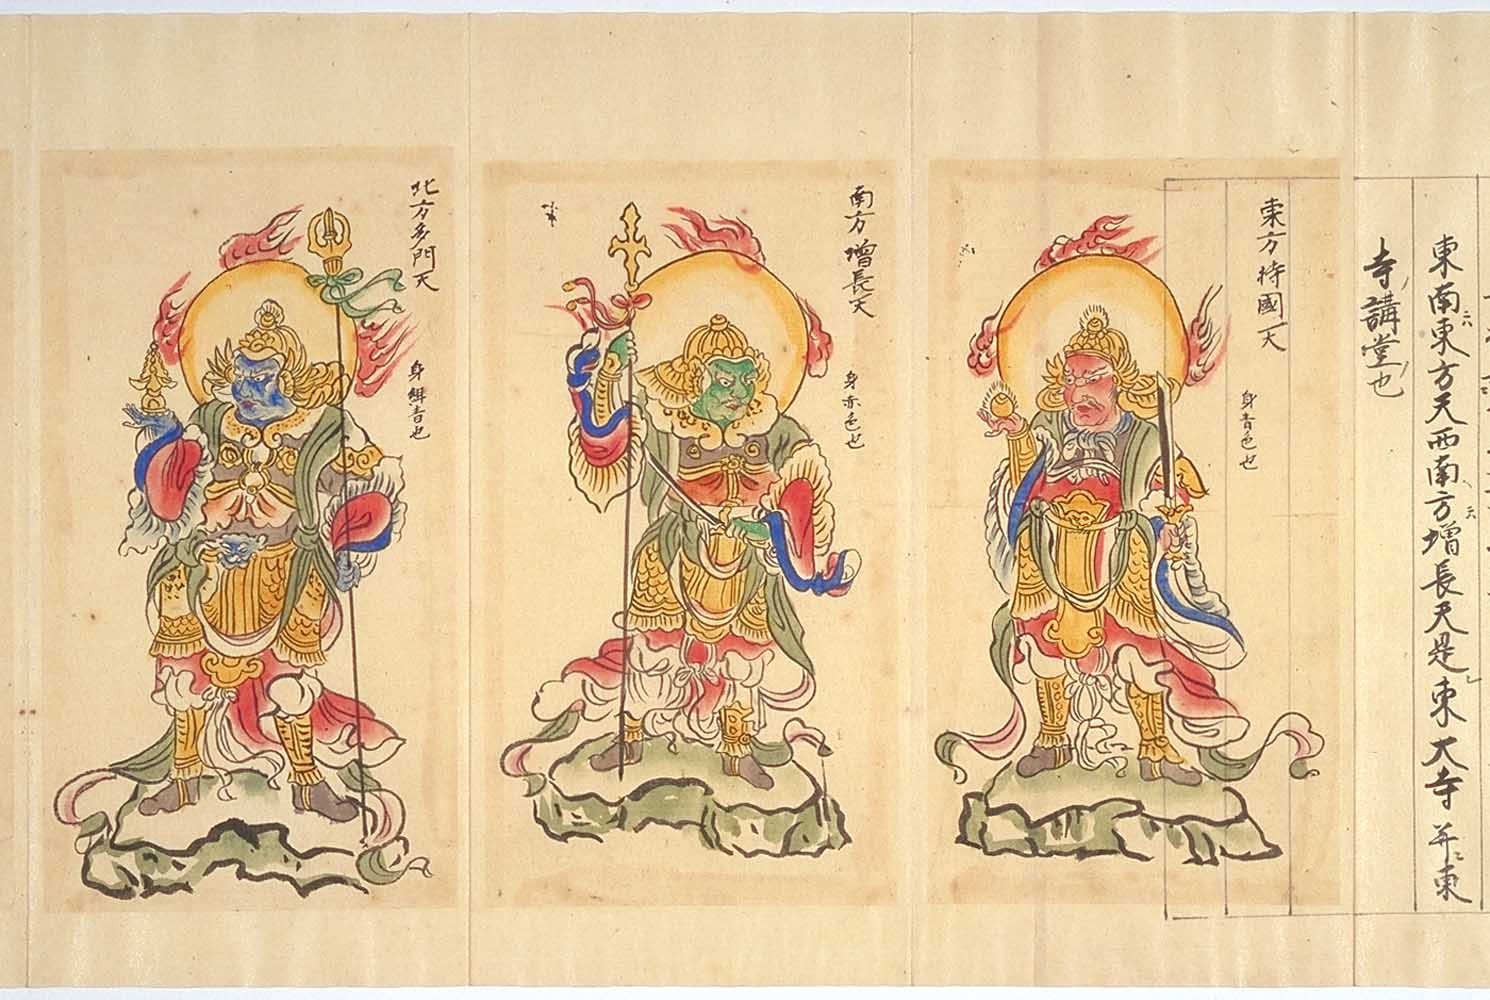 東南東方天西南方増長天是東大寺并東
寺講堂也
東方持國天
身青色也
南方増長天
身赤色也
北方多門天
身紺青也